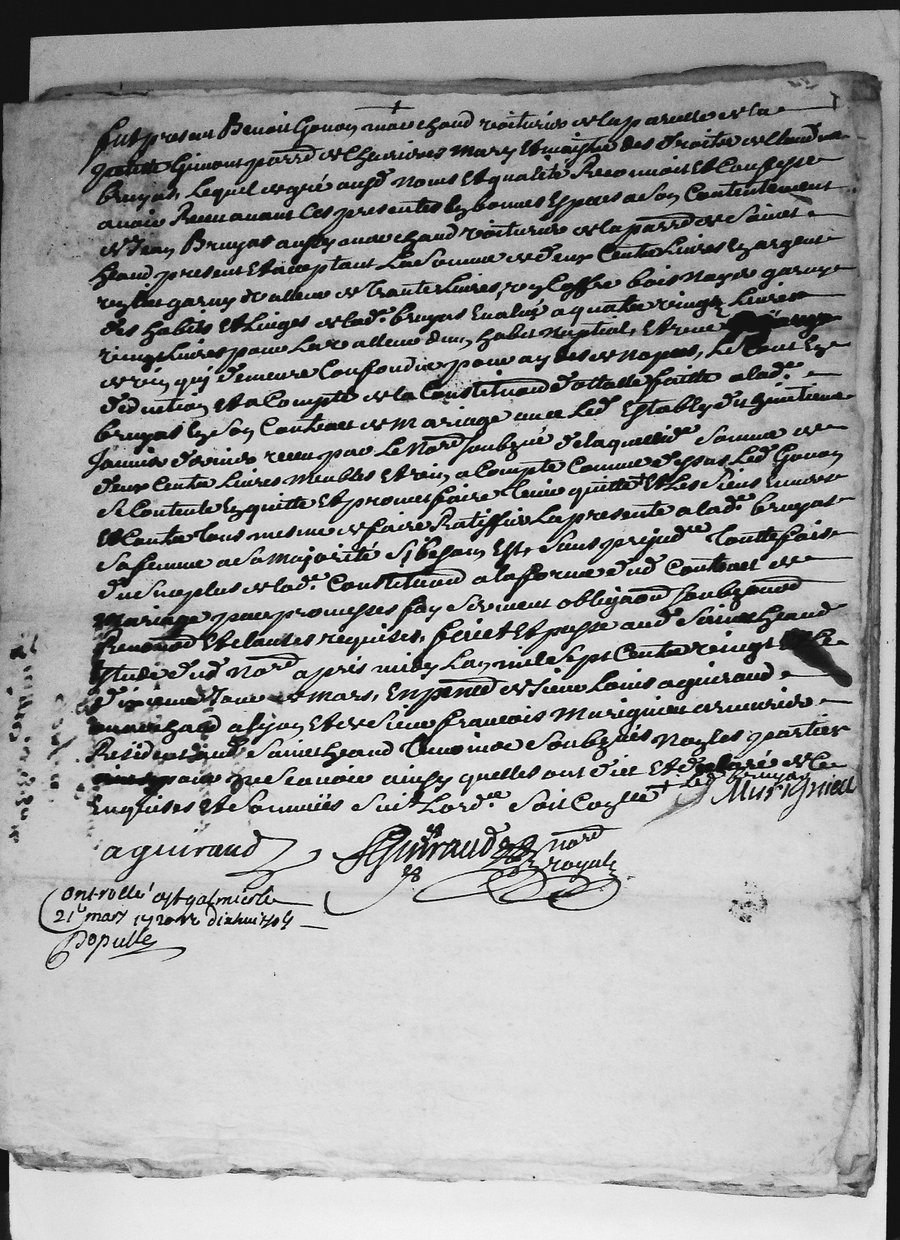 fut present Benoit Gonon marchand voiturier de la parcelle de la
Gimont parr.d de Chevrieres mary et maistre des droits de Claudine
bruyas, Lequel de gré aud. Noms et qualité Reconnoit et Confesse
avoir Receu avant Ces presentes en bonnes Especes a Son Contentement
de Jean Bruyas aussy marchand voiturier de la parr.d de Sainct
heand present et acceptant La Somme de deux Cents Livres en argent
garny de valleur de trante Livres, coffre bois Noyer garny
des habits et Linges de lad.e bruyas Evalué a quatre vingt Livres
vingt Livres pour La valleur d'un habit Nuptial, et une
de vin quj demeure Confondu pour aydes de Nopces, Le tout En
deduction Et a Compte de la Constitution d'ottalle faitte a lad.e
bruyas En Son Contract de Mariage avec Led. Estably du huitieme
Janvier dernier receu par Le No.rd Soubzné de laquelle Somme de
deux Cents Livres Meubles et vin a Compte Comme dessus Led. Gonon
Se Contente En quitte Et promet faire tenir quitte Et Les Siens Envers
Et Contre tous mesme de faire Ratiffier La presente a lad.e bruyas
Sa femme a Sa Majorité Sj besoin Est, Sans prejud.ce touttefois
du Surplus de lad.e Constitution a la forme dud. Contract de
Mariage par promesses foy Serment obligaon Soubzmon
Renonon Et clautes requises, fait et passé aud. Sainct heand
Etude dud. No.rd apres midy Lan mil Sept Cents vingt
dixieme Jour de Mars, En pñce de Sieur Louis aguiraud
marchand a Lyon Et de Sieur francois Murigneu armurier
Resident aud. Sainct heand temoins Soubzsignés Non Les parties
pour ne Scavoir ainsy quelles ont dit et declaré de Ce
Enquises et Sommées Suit. Lord.ce Soit Coallé Led. bruyas
Murigneu
aguiraud Aguiraud no.rd
royal
Controllé a St galmier le
21e mars 1720 R. dix huit sols
Dopulle